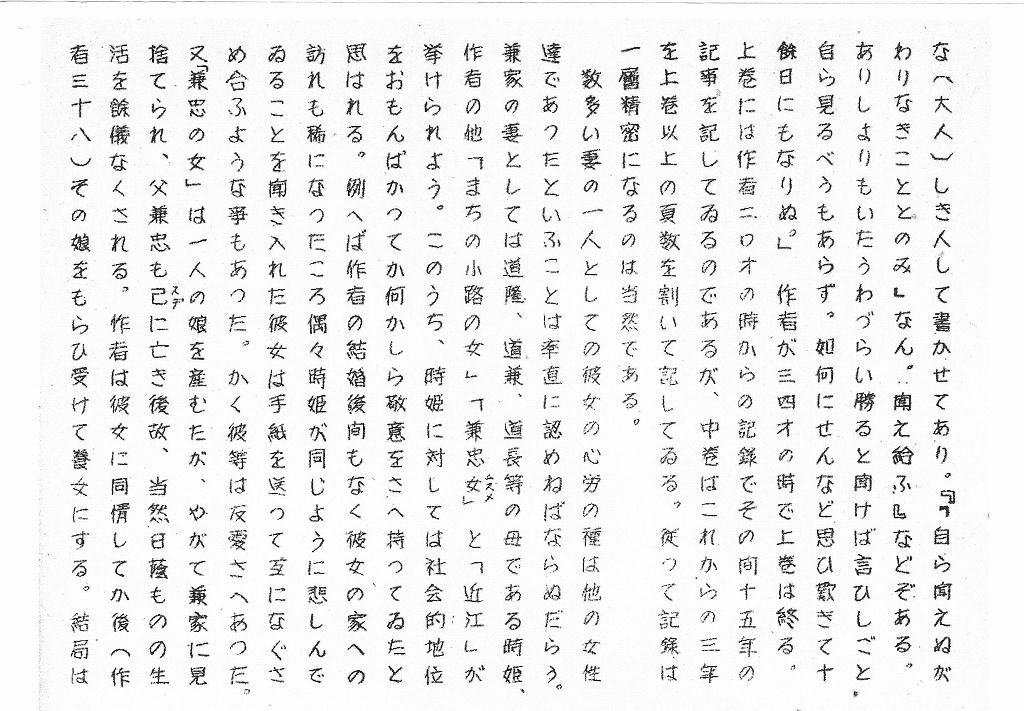 な（大人）しき人して書かせてあり。『「自ら聞えぬが
わりなきこととのみ』なん。聞え給ふ』などぞある。
ありしよりもいたうわづらい勝ると聞けば言ひしごと、
自ら見るべうもあらず。如何にせんなど思ひ歎きて十
餘日にもなりぬ。」　作者が三四才の時で上巻は終る。
上巻には作者二〇才の時からの記録でその間十五年の
記事を記してゐるのであるが、中巻はこれからの三年
を上巻以上の頁数を割いて記してゐる。従つて記録は
一層精密になるのは当然である。
　数多い妻の一人としての彼女の心労の種は他の女性
達であつたといふことは率直に認めねばならぬだらう。
兼家の妻としては道隆、道兼、道長等の母である時姫、
作者の他「まちの小路の女」「兼忠女ムスメ」と「近江」が
挙けられよう。このうち、時姫に対しては社会的地位
をおもんぱかつてか何かしら敬意をさへ持つてゐたと
思はれる。例へば作者の結婚後間もなく彼女の家への
訪れも稀になつたころ偶々時姫が同じように悲しんで
ゐることを聞き入れた彼女は手紙を送つて互になぐさ
め合ふような事もあつた。かく彼等は友愛さへあつた。
又「兼忠の女」は一人の娘を産むたが、やがて兼家に見
捨てられ、父兼忠も己スデに亡き後故、当然日蔭ものの生
活を餘儀なくされる。作者は彼女に同情してか後（作
者三十八）その娘をもらひ受けて養女にする。結局は